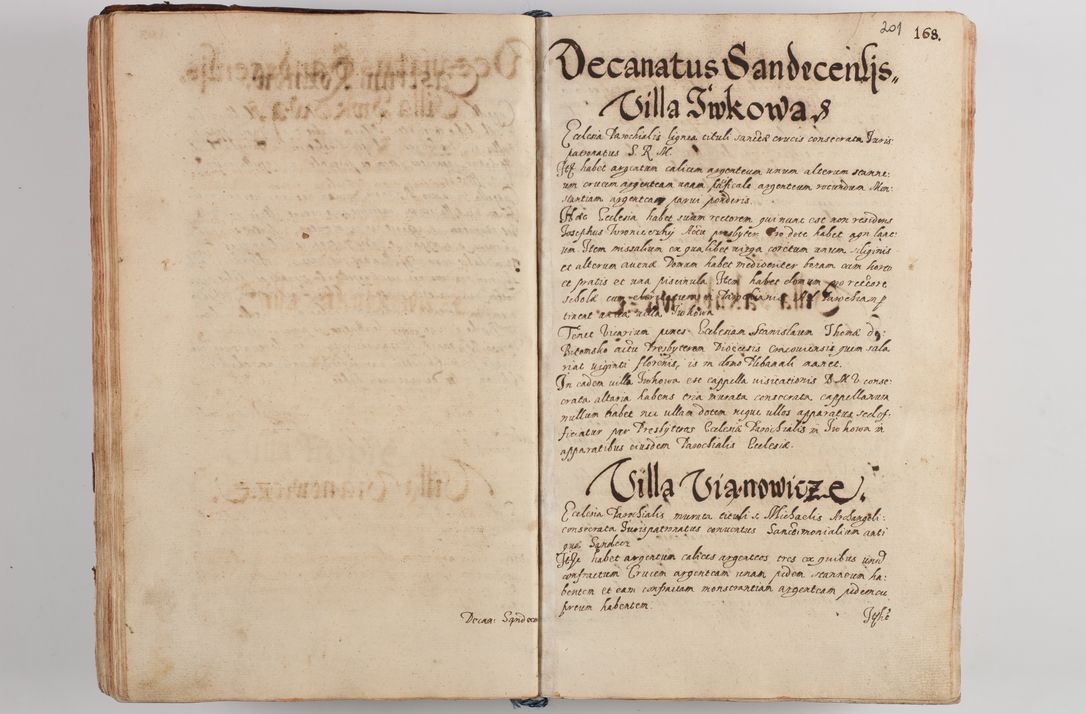 201 168.
Decanatus Sandecensis
Villa Iwkowa
Ecclesia Parochialis lignea tituli sanctæ crucis consecrata Iuris
patronatus S. R. M.
habet argentum calicem argenteum unum alterum stanne:
um crucem argenteam unam pacificale argenteum rotundum Mon:
strantiam argenteam parui ponderis.
Ecclesia habet suum rectorem qui nunc est non residens
Iosephus Actu presbyterum Pro dote habet
um Item missalium ex qua libet virga coretum unum siliginis
et alterum auenæ Domum habet mediocriter bonam cum horto
et pratis et una piscinula Item habet domum pro rectore
scholæ cum Parochiam
tinent villa Iwkowa
Tenet Vicarium penes Ecclesiam Stanislaum Thomæ de
Bitomsko actu Presbyterum Diocesis Cracouiensis quem sala
riat viginti florenis, is in domo Plebanali manet.
In eadem villa Iwkowa est cappella visitationis B M V conse:
crata altaria habens tria murata consecrata cappellanum
nullum habet nec ullam dotem neque ullos apparatus sed of
ficiatur per Presbyteros Ecclesiæ Parochialis in Iwkowa in
apparatibus eiusdem Parochialis Ecclesiæ.
Villa
Ecclesia Parochialis murata tituli S. Michaelis Archangeli
consecrata Iuris patronatus conuentus Sanctimonialium anti
quæ Sandecz
habet argentum calices argenteos tres ex quibus unū
confractum Crucem argenteam unam pedem stanneum ha:
bentem et eam confractam monstrantiam argenteam pedem cu
preum habentem.
Decan: Sandecen